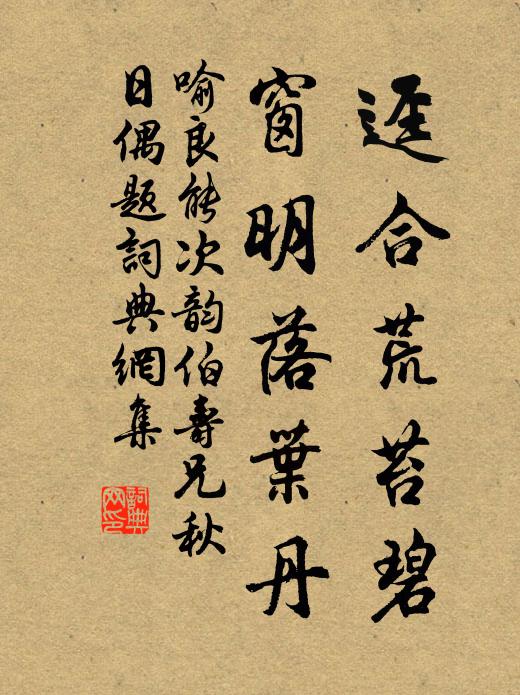 逕合荒苔碧
窗明落葉丹
喻良能次韵伯壽兄秋
日偶題詞典網集
詞典
网印